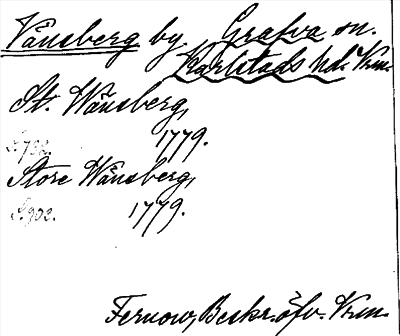 Vänsberg by Grafva sn.
Karlstads hd. Vrm.
St. Wänsberg,
S. 732. 1779.
Store Wänsberg,
S. 902. 1779.
Fernow, Beskr. öfv. Vrm.